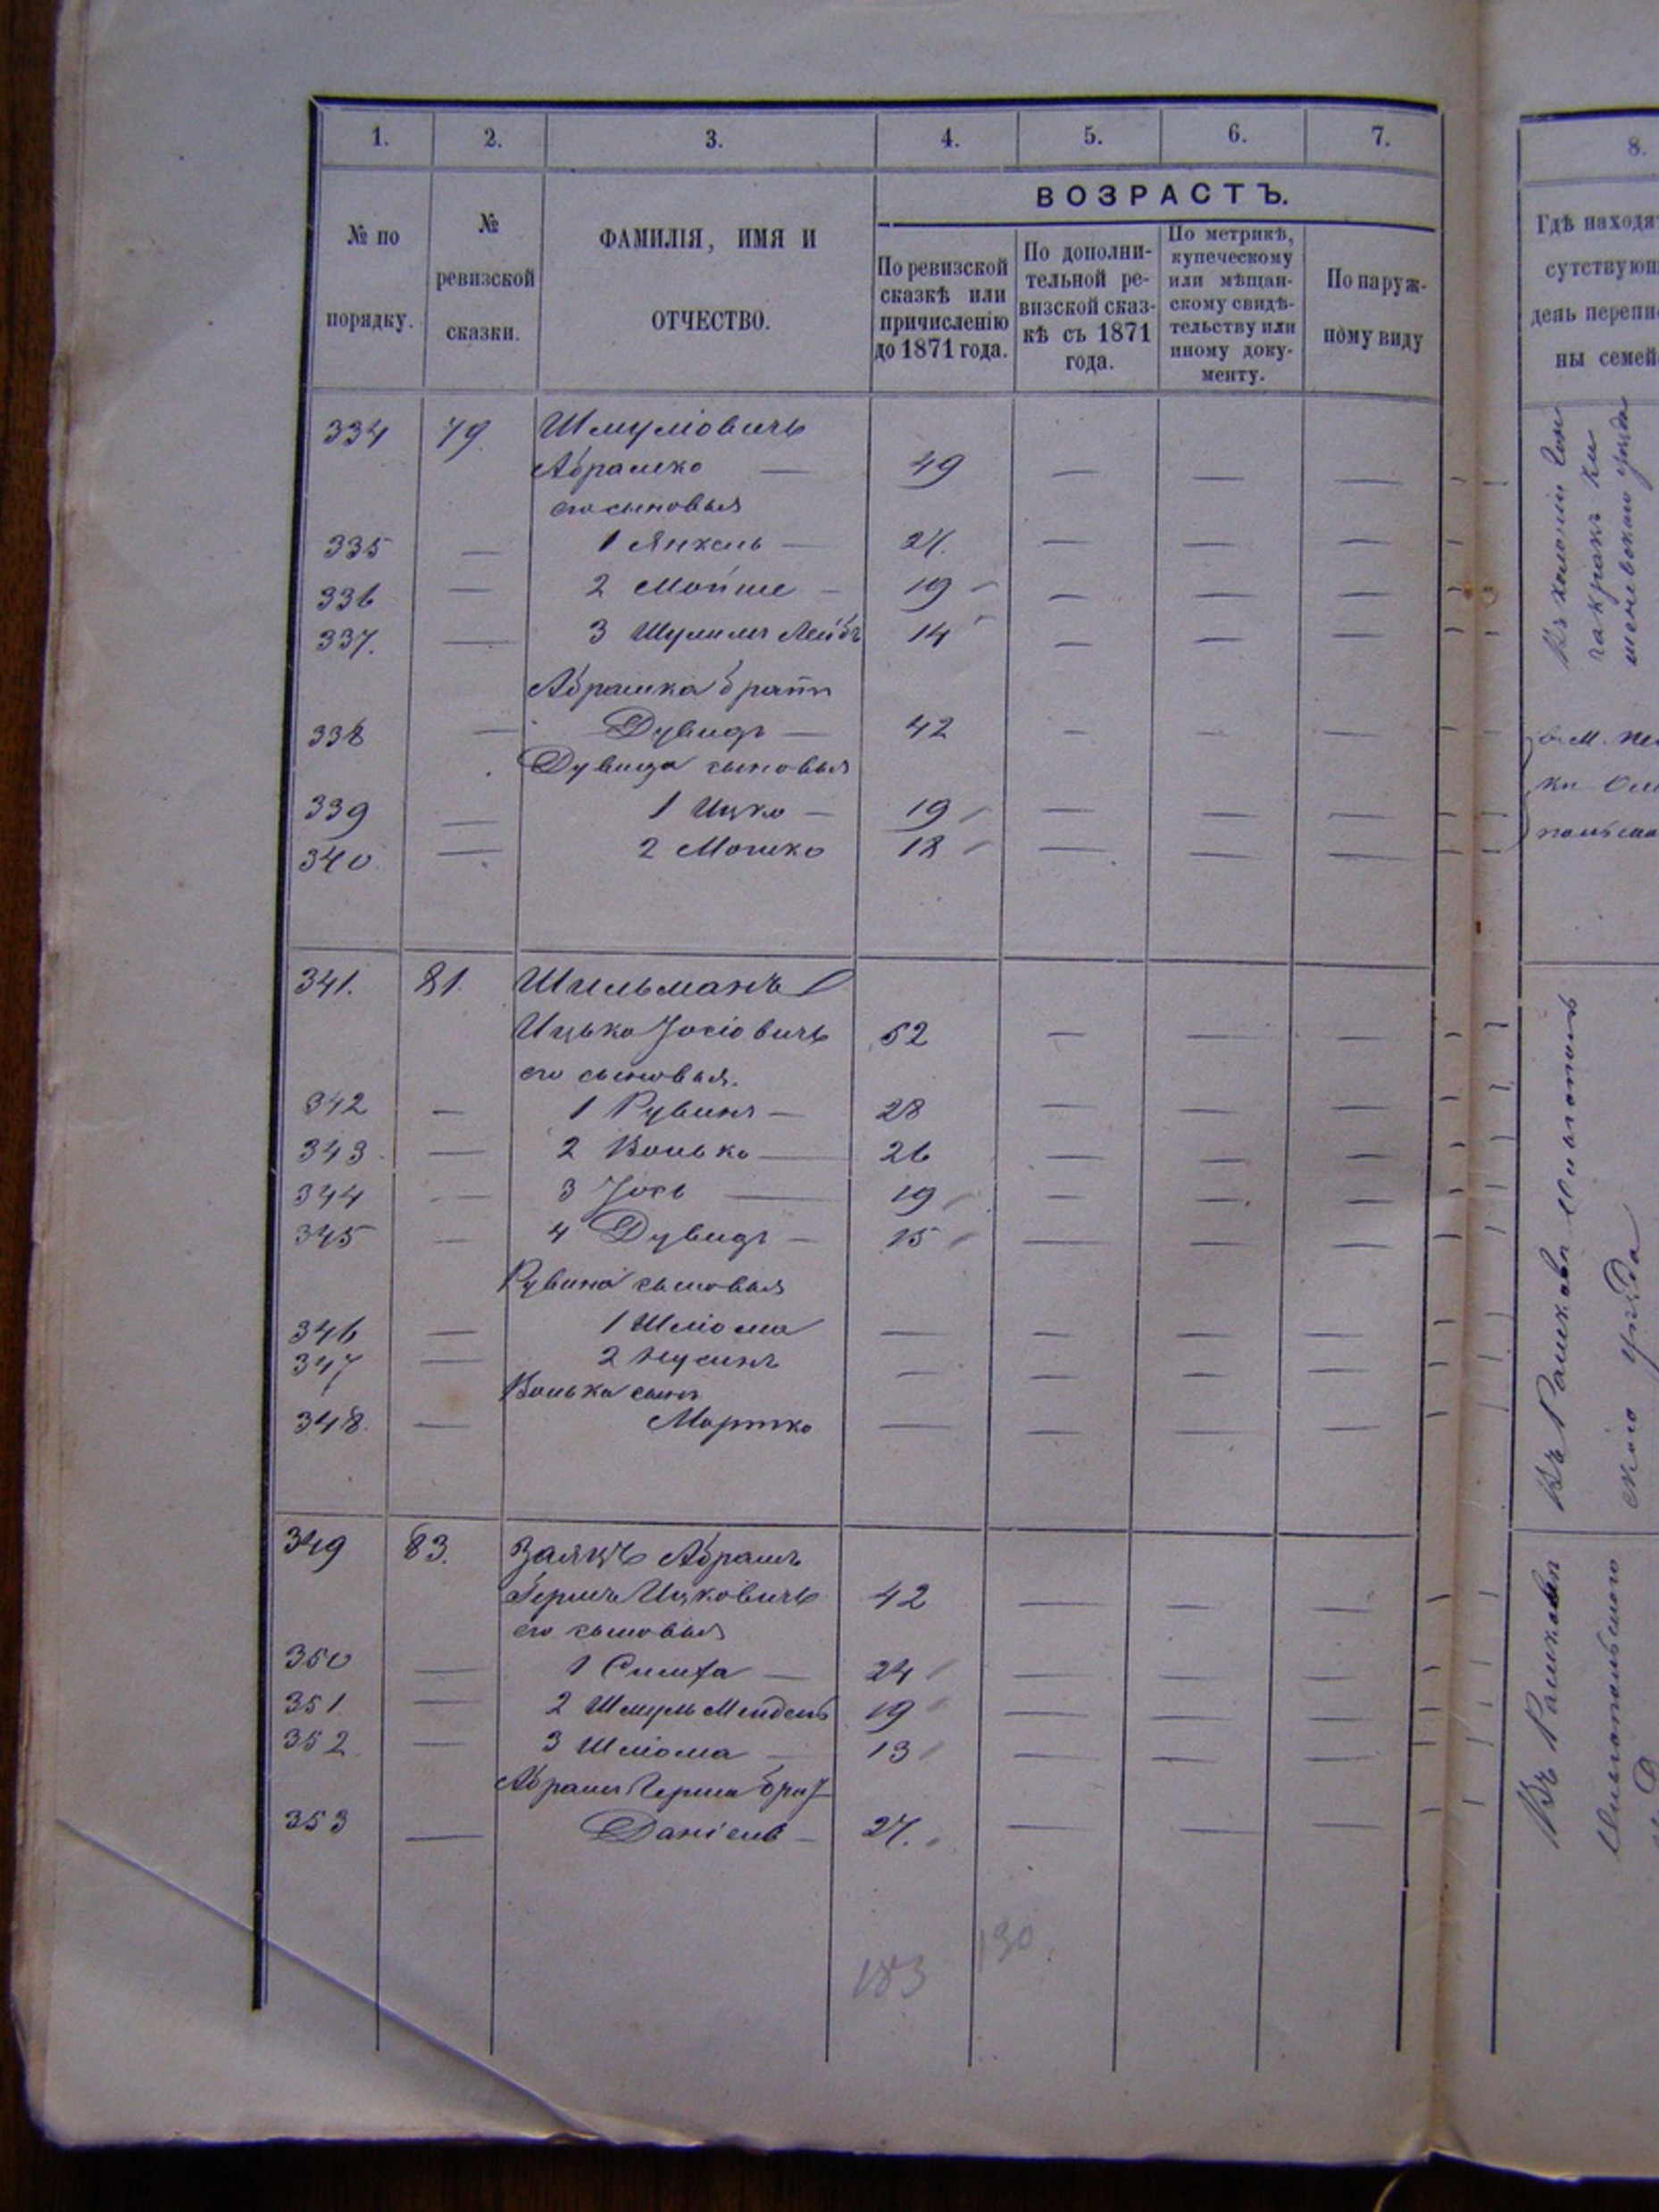 1. 2. 3. 4. 5. 6. 7. 8.
ВОЗРАСТЪ.
№ по порядку.
№ ревизской сказки.
ФАМИЛІЯ, ИМЯ И ОТЧЕСТВО.
По ревизской сказкѣ или причисленію до 1871 года.
По дополнительной ревизской сказкѣ съ 1871 года.
По метрикѣ, купеческому или мѣщанскому свидѣтельству или иному документу.
По наружному виду
Гдѣ находя
сутствующ
день перепи
ны семей
334 79. Шмуліовичъ
Абрашко — 49 — — —
его сыновья
335 — 1 Янкель — 27. — — —
336 — 2 Мойше — 19 — — —
337. — 3 Шулимъ Лейбъ 14 — — —
Абрашка братъ
338 — Дувидъ — 42 — — —
Дувида сыновья
339 — 1 Ицко — 19 — — —
340. — 2 Мошко 18 — — —
341. 81. Шильманъ
Ицько Іосіовичъ 52 — — —
его сыновья.
342 — 1 Рувинъ — 28 — — —
343 — 2 Волько — 26 — — —
344 — 3 Іось — 19 — — —
345 — 4 Дувидъ — 15 — — —
Рувина сыновья
346 — 1 Шліома — — — —
347 — 2 Нусинъ — — — —
Волька сынъ
348. — Мортко — — — —
349 83. Заяцъ Абрамъ
Гершъ Ицковичъ 42 — — —
его сыновья
350 — 1 Симха — 24 — — —
351. — 2 Шмуль Мендель 19 — — —
352. — 3 Шліома — 13 — — —
Абрамъ Герша братъ
353 — Даніель — 27. — — —
183 130.
Въ Рашковѣ Ольгопольскаго уѣзда
Въ Рашковѣ
Ольгопольскаго